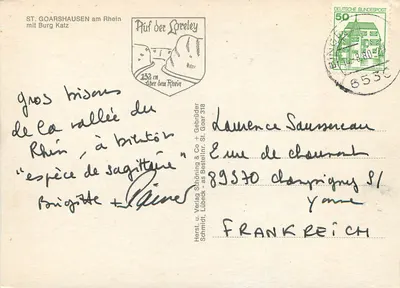 ST. GOARSHAUSEN am Rhein
mit Burg Katz
Auf der Loreley
132 m
über dem Rhein
DEUTSCHE BUNDESPOST
50
BINGEN
653
Gros bisous
de la vallée du
Rhin, à bientôt
"espèce de sagittaire"
Brigitte +
Herst. u. Verlag Schöning & Co + Gebrüder
Schmidt, Lübeck - Bestellnr. St. Goar 318
Laurence Saussereau
2 rue de chaumont
89370 Champigny S/
Yonne
FRANKREICH